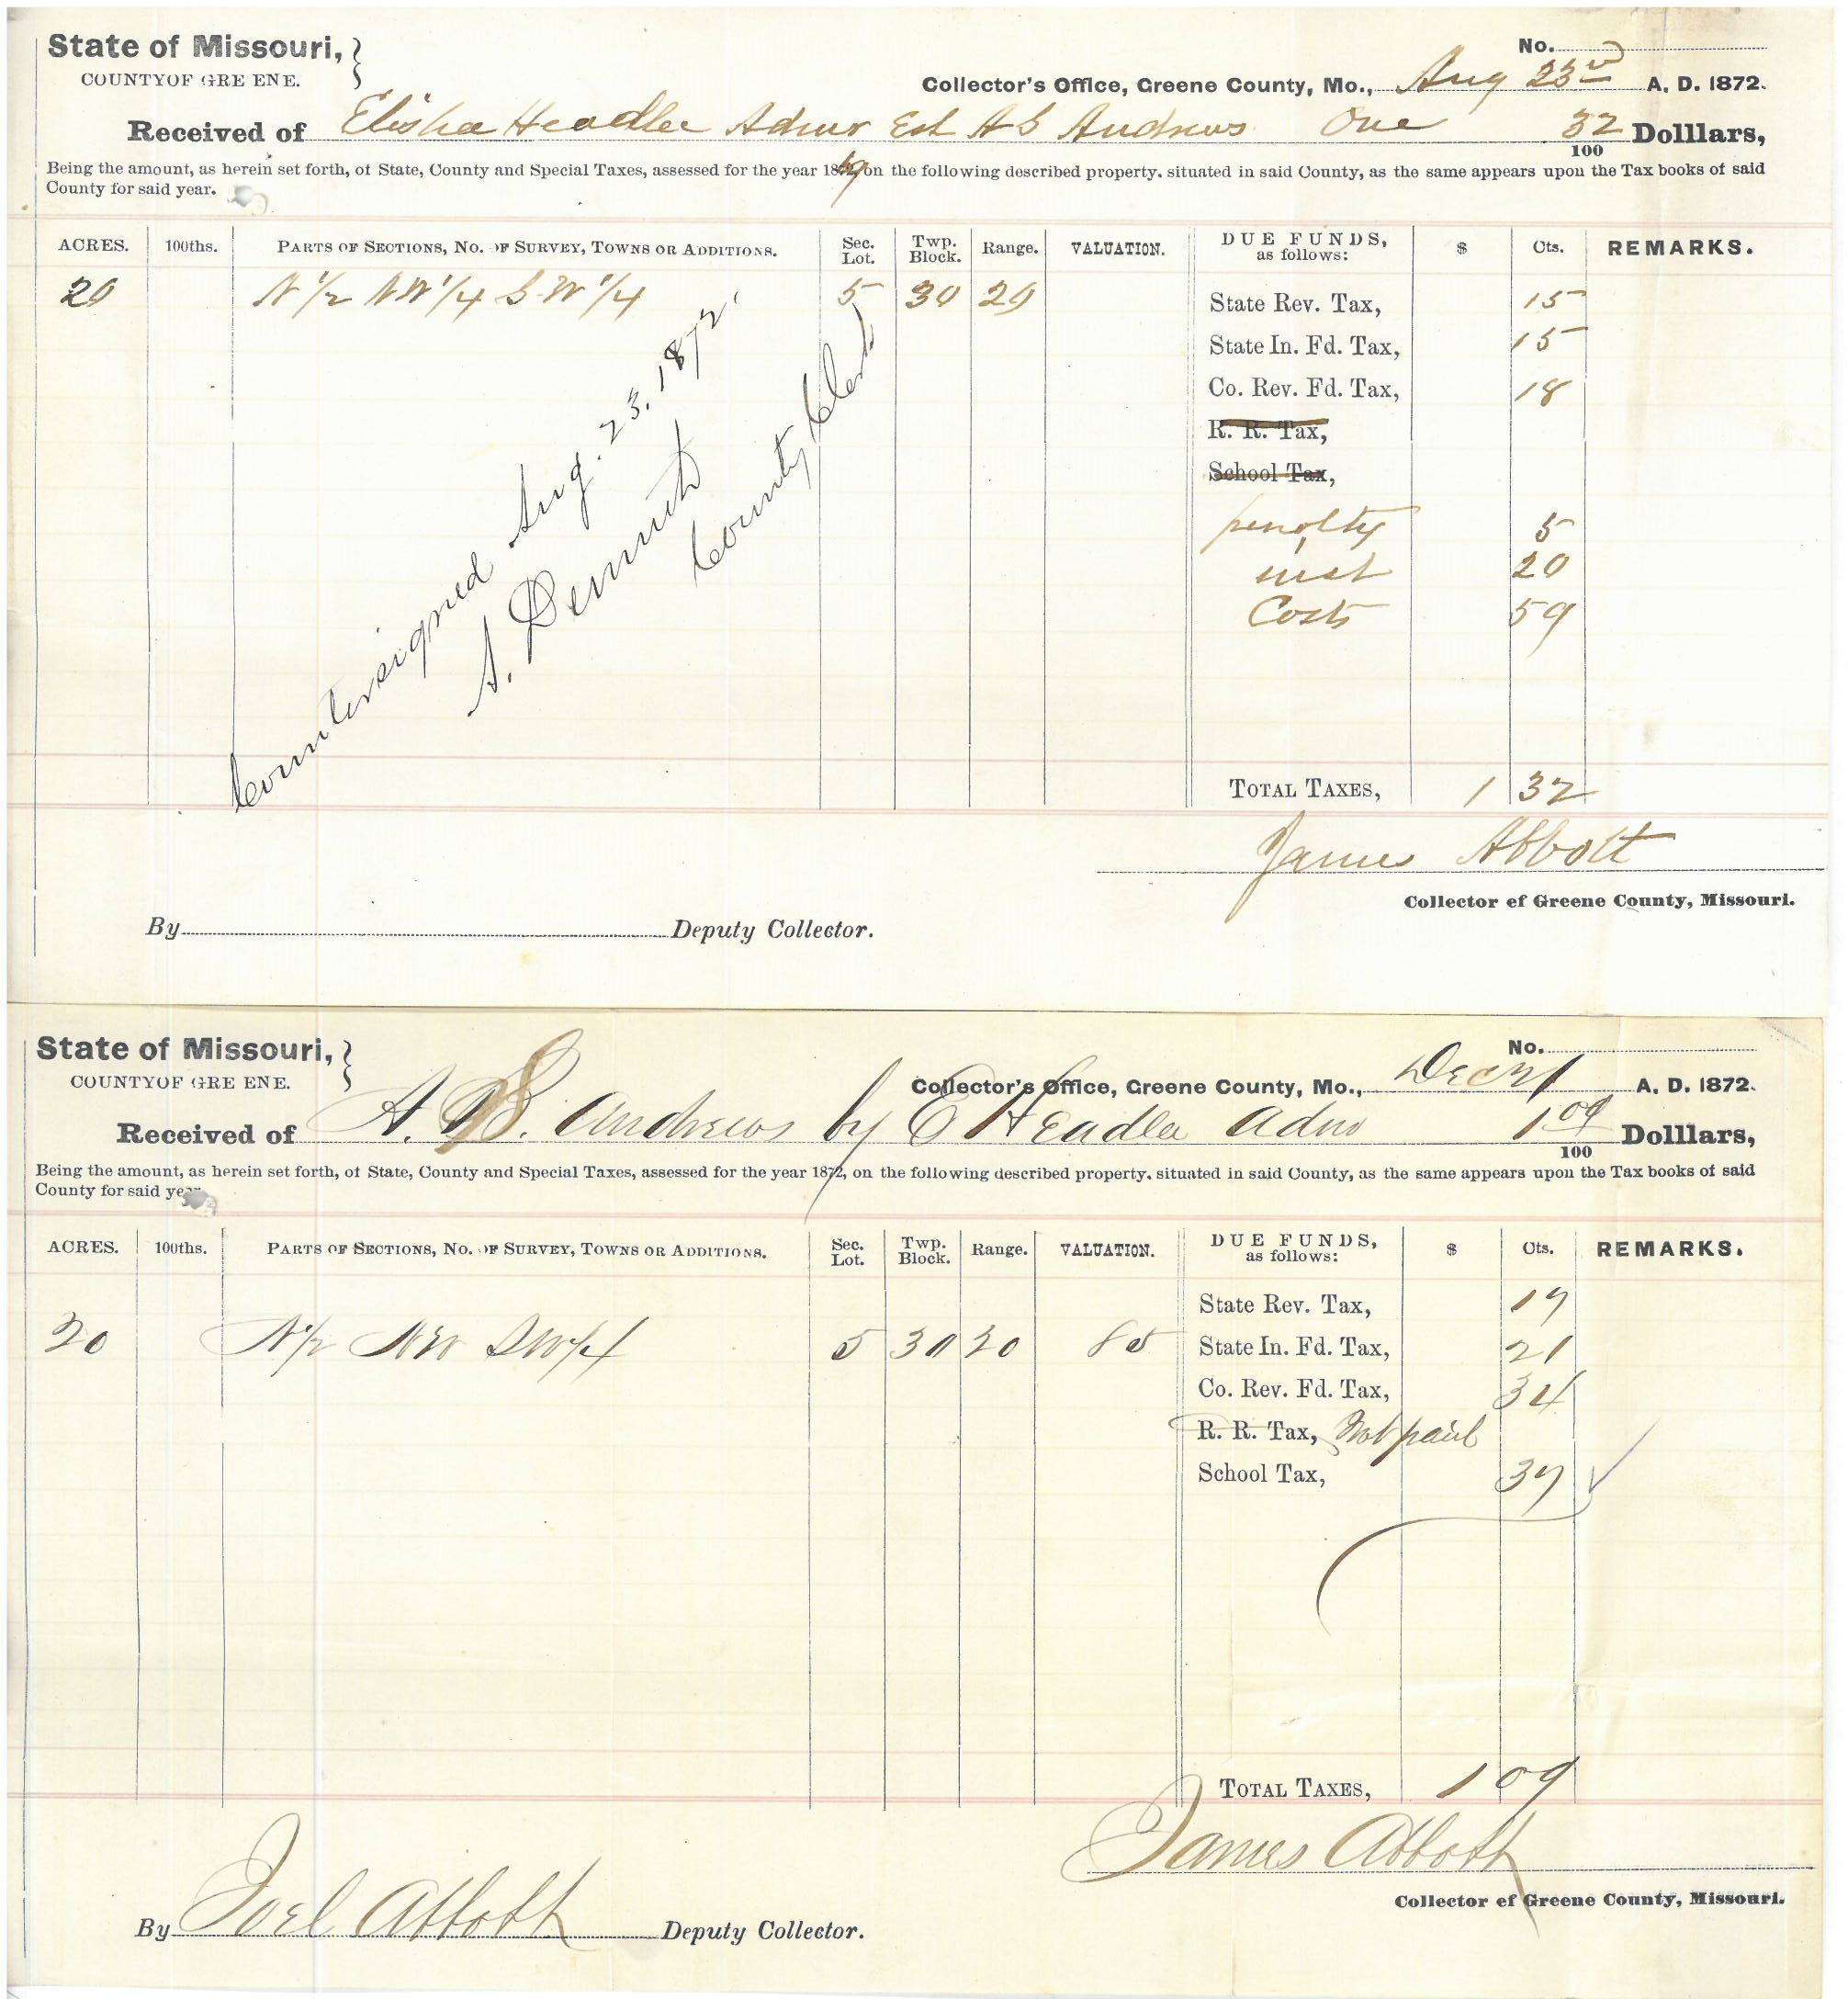 State of Missouri, }
COUNTY OF GREENE.
No.
Collector's Office, Greene County, Mo., Aug 23rd A. D. 1872.
Received of Elisha Headlee Admr Est A S Andrews One 32/100 Dolllars,
Being the amount, as herein set forth, of State, County and Special Taxes, assessed for the year 1869 on the following described property, situated in said County, as the same appears upon the Tax books of said
County for said year.
ACRES. 100ths. PARTS OF SECTIONS, NO. OF SURVEY, TOWNS OR ADDITIONS. Sec. Lot. Twp. Block. Range. VALUATION. DUE FUNDS, as follows: $ Cts. REMARKS.
20 N 1/2 NW 1/4 S W 1/4 5 30 20 State Rev. Tax, 15
State In. Fd. Tax, 15
Co. Rev. Fd. Tax, 18
R. R. Tax,
School Tax,
penalty 5
inst 20
Costs 59
Countersigned Aug. 23. 1872.
S. Demuth
County Clerk
TOTAL TAXES, 1 32
James Abbott
Collector of Greene County, Missouri.
By Deputy Collector.
State of Missouri, }
COUNTY OF GREENE.
No.
Collector's Office, Greene County, Mo., Dec 21 A. D. 1872.
Received of A. S. Andrews by E Headlee Adm 1 09/100 Dolllars,
Being the amount, as herein set forth, of State, County and Special Taxes, assessed for the year 1872, on the following described property, situated in said County, as the same appears upon the Tax books of said
County for said year
ACRES. 100ths. PARTS OF SECTIONS, NO. OF SURVEY, TOWNS OR ADDITIONS. Sec. Lot. Twp. Block. Range. VALUATION. DUE FUNDS, as follows: $ Cts. REMARKS.
State Rev. Tax, 17
20 N 1/2 NW SW 1/4 5 30 20 85 State In. Fd. Tax, 21
Co. Rev. Fd. Tax, 34
R. R. Tax, Not paid
School Tax, 37
TOTAL TAXES, 1 09
James Abbott
Collector of Greene County, Missouri.
By Joel Abbott Deputy Collector.